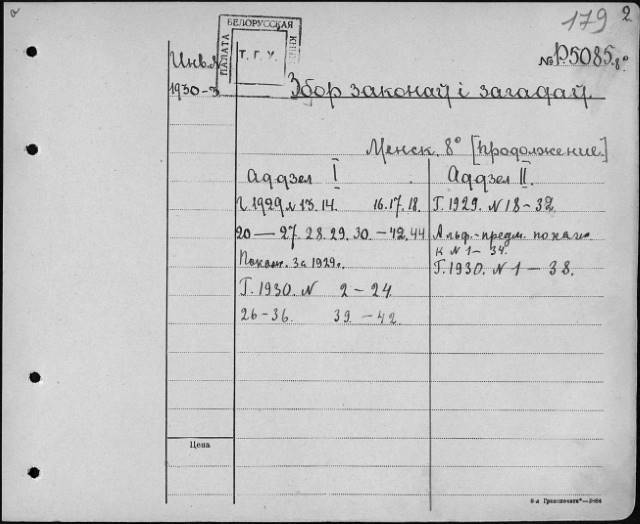 179 2
БЕЛОРУССКАЯ
ПАЛАТА
КНИЖ
Т. Г. У.
Инв. №
1930-3
№ Р.5085.8°
Збор законаў і загадаў.
Менск. 8° [продолжение]
Аддзел I
Г. 1929. N 13. 14. 16. 17. 18.
20 — 27. 28. 29. 30. — 42. 44
Показ. за 1929 г.
Г. 1930. N 2 — 24.
26 — 36. 39. — 42.
Аддзел II.
Г. 1929. N 18 — 32
Альф.-предм. показ.
к N 1 — 34.
Г. 1930. N 1 — 38.
Цена